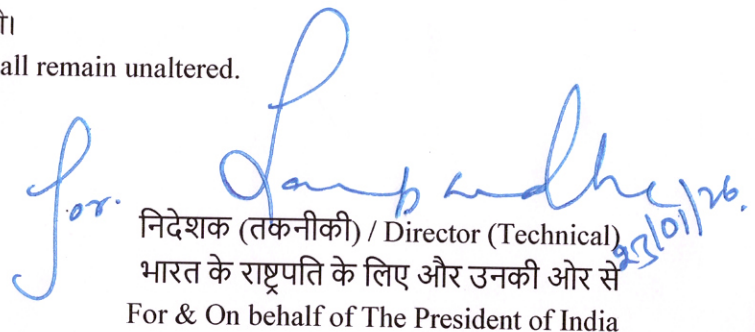 all remain unaltered.
for.
निदेशक (तकनीकी) / Director (Technical)
23/01/26.
भारत के राष्ट्रपति के लिए और उनकी ओर से
For & On behalf of The President of India